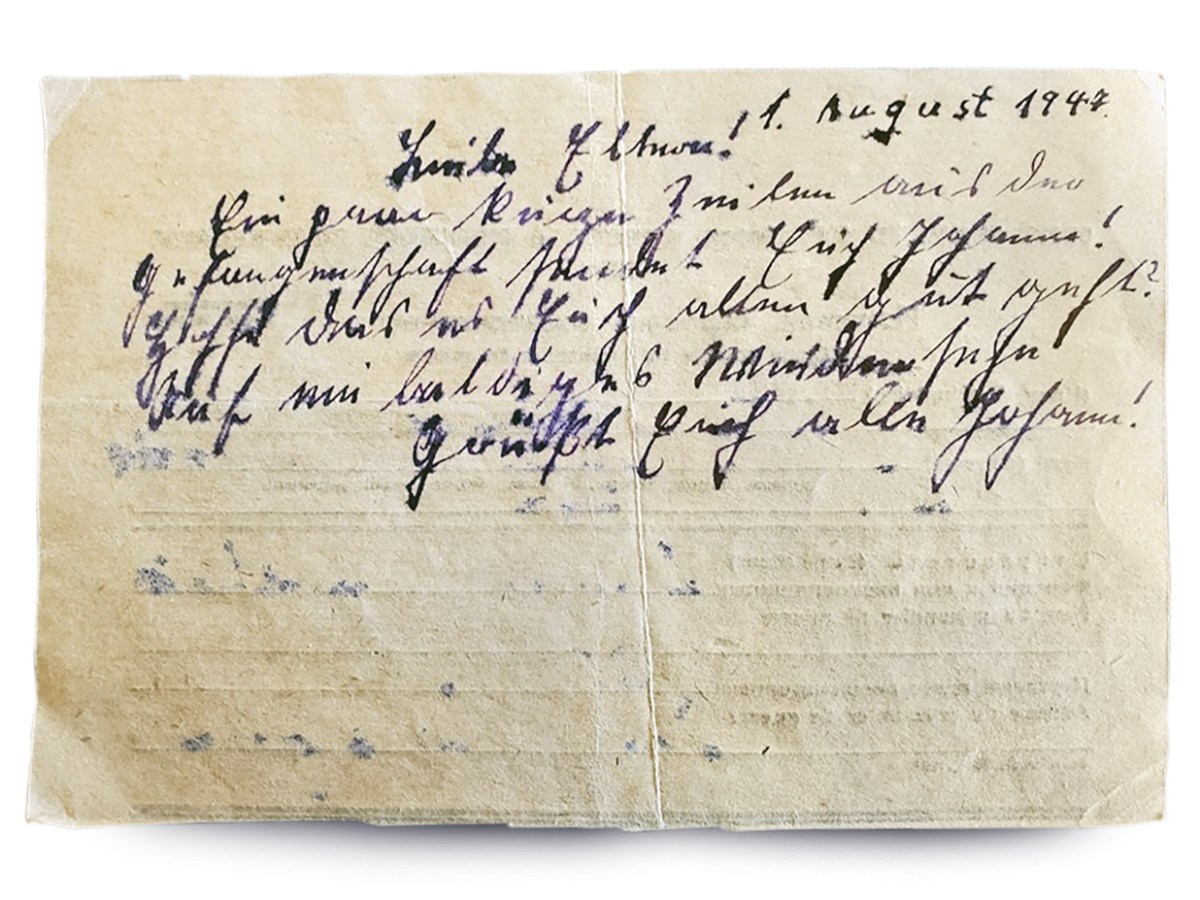 1. August 1947.
Liebe Eltern!
Ein paar kurze Zeilen aus der
Gefangenschaft sendet Euch Johann!
Hoffe das es Euch allen gut geht?
Auf ein baldiges Wiedersehn
Grüßt Euch alle Johann!